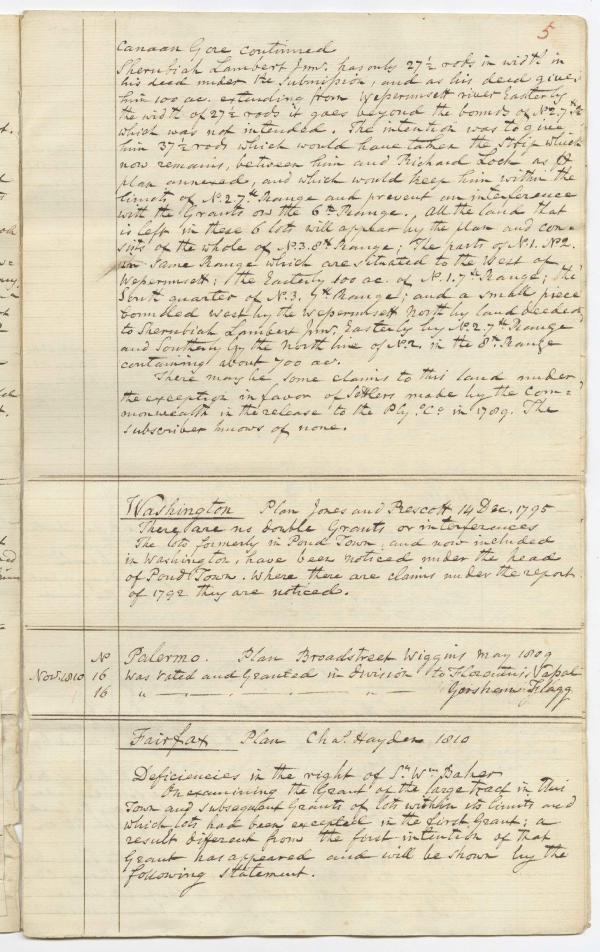 5
Canaan Gore continued
Sherubiah Lambert Junr. has only 27½ rods in width in
his deed under the Submission, and as his deed gives
him 100 ac. extending from Wesserunsett river Easterly
the width of 27½ rods it goes beyond the bounds of No. 2. 7th R
which was not intended. The intention was to give
him 37½ rods which would have taken the strip which
now remains, between him and Richard Lock as
plan annexed, and which would keep him within the
limits of No. 2 7th Range and prevent an interference
with the Grants on the 6th Range. All the land that
is left in these 6 lots will appear by the plan and con=
sist of the whole of No. 3. 8th Range; The parts of No. 1. No. 2.
in Same Range which are situated to the West of
Wesserunsett; the Easterly 100 ac. of No. 1. 7th Range; the
South quarter of No. 3. 7th Range; and a small piece
bounded West by the Wesserunsett North by land deeded
to Sherubiah Lambert Junr. Easterly by No. 2. 7th Range
and Southerly by the North line of No. 2. in the 8th Range
containing about 700 ac.
There may be some claims to this land under
the exception in favor of Settlers made by the Com=
monwealth in the release to the Ply. Co. in 1789. The
subscriber knows of none.
Washington Plan Jones and Prescott 14 Dec. 1795
There are no double Grants or interferences
The lots formerly in Pond Town, and now included
in Washington, have been noticed under the head
of Pond Town. Where there are claims under the report
of 1792 they are noticed.
No Palermo. Plan Broadstreet Wiggins May 1809
Nov. 1810 16 Was voted and Granted in division to Florentius Vassal
16 " " Gershom Flagg
Fairfax Plan Chas. Hayden 1810
Deficiencies in the right of Sr. Wm. Baker
On examining the Grant of the large tract in this
Town and subsequent Grants of lots within its limits and
which lots had been excepted in the first Grant; a
result different from the first intention of that
Grant has appeared and will be shown by the
following statement.